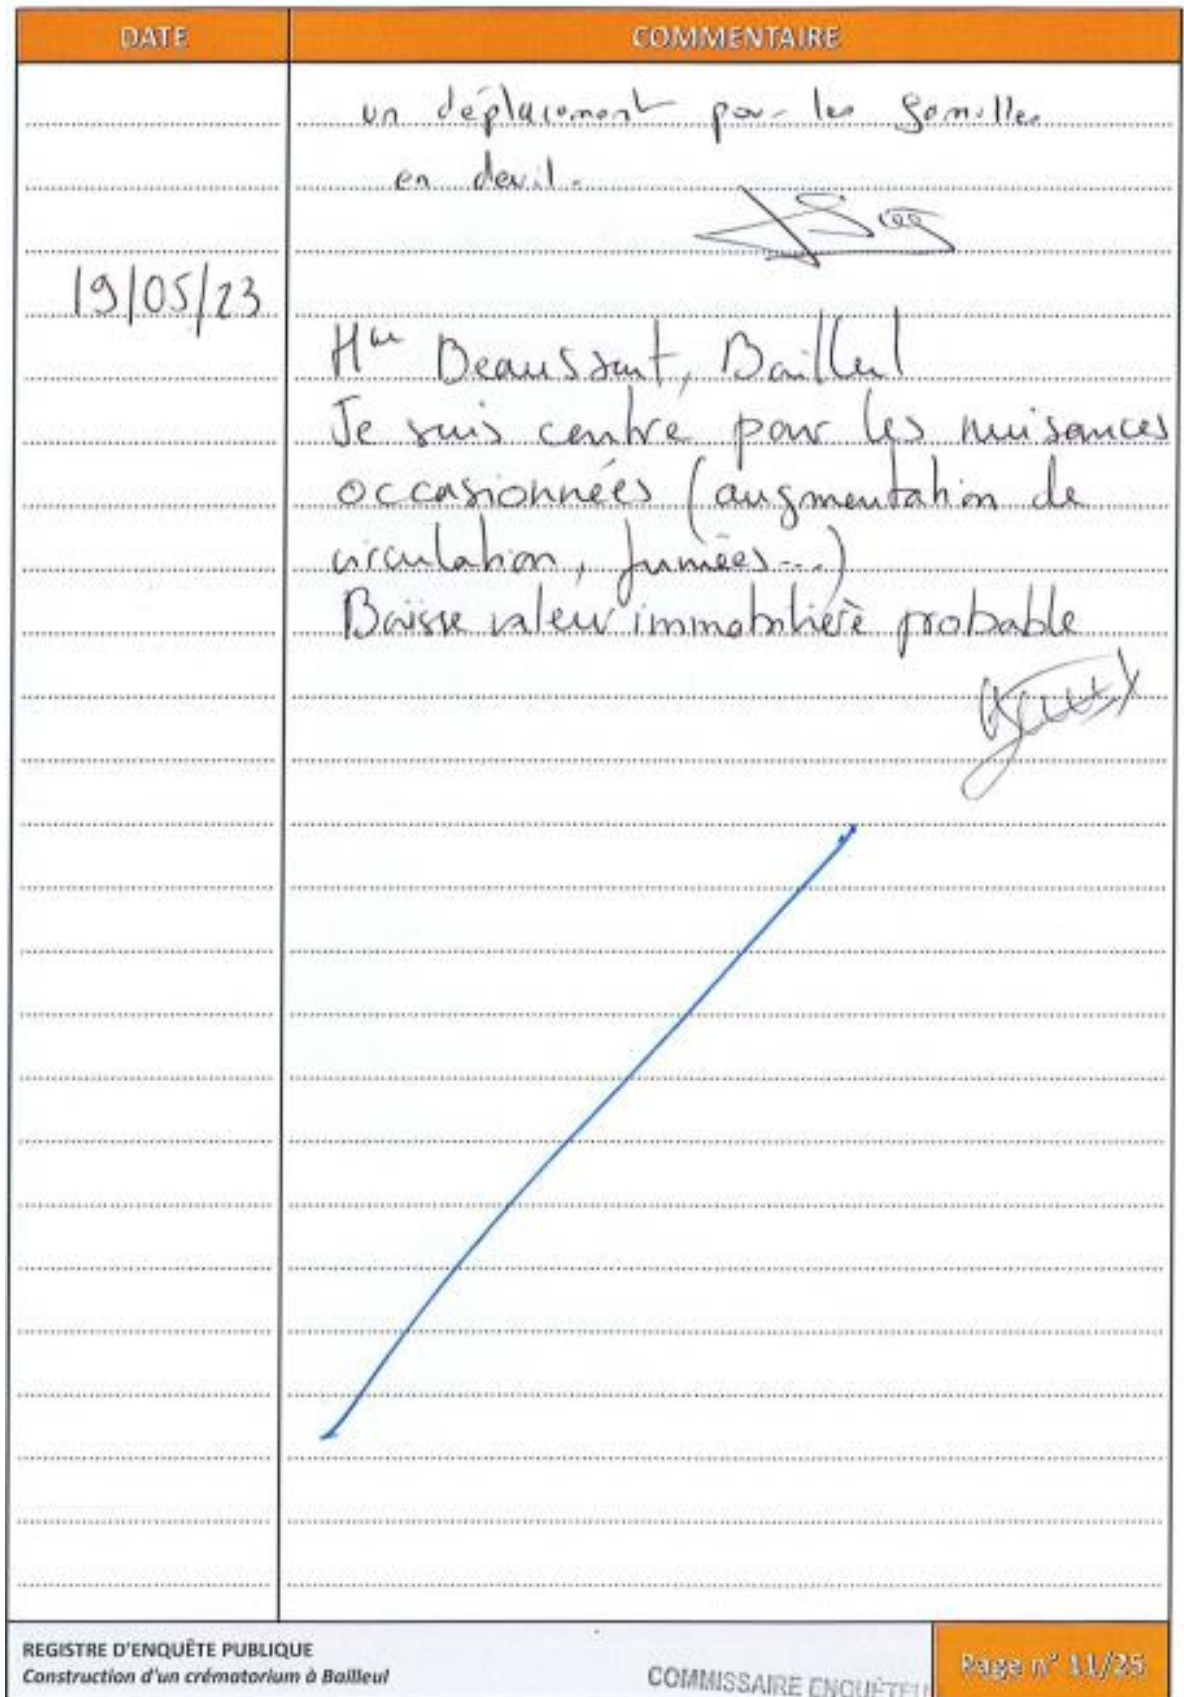 DATE
COMMENTAIRE
un déplacement pour les familles
en deuil.
19/05/23
Mme Beaussart, Bailleul
Je suis contre pour les nuisances
occasionnées (augmentation de
circulation, fumées...)
Baisse valeur immobilière probable
REGISTRE D'ENQUÊTE PUBLIQUE
Construction d'un crématorium à Bailleul
COMMISSAIRE ENQUÊTEU
Page n° 11/25